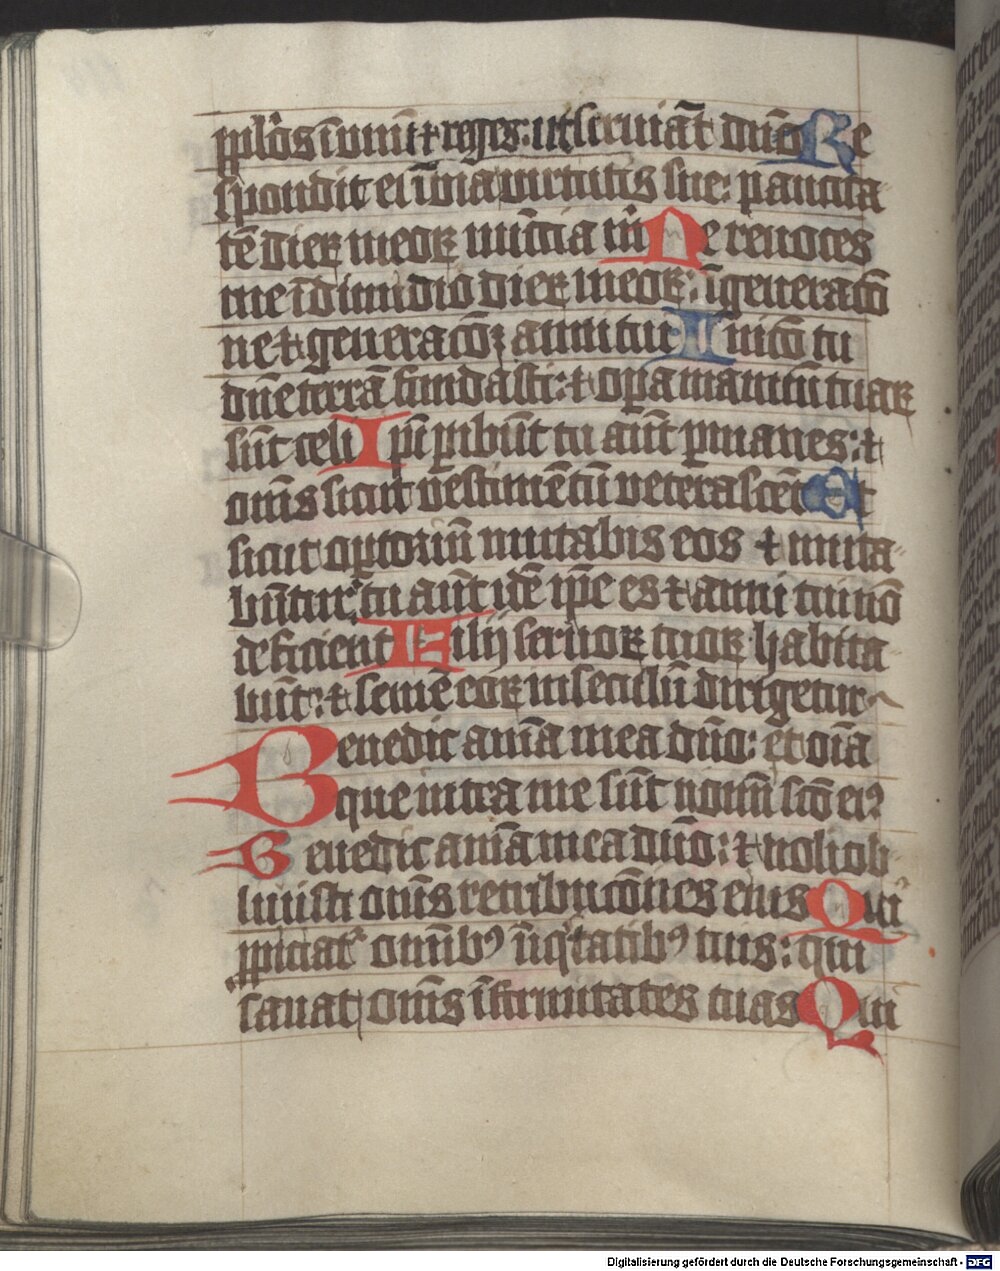 ppl̄os ī vnū ⁊ reges: ut seruiāt dūo Re
spondit ei ī via virtutis sue: paucita
tē dieꝝ meoꝝ nūcia m̄ Ne reuoces
me ī dimidio dieꝝ meoꝝ: ī generacō
ne ⁊ generacōꝫ anni tui Inicō tu
dn̄e terrā fundasti: ⁊ opa manuū tuaꝝ
sūt celi Ipī ꝑibūt tu aūt ꝑmanes: ⁊
om̄s sicut vestimētū veterascēt Et
sicut optoriū mutabis eos ⁊ muta
būtur: tu aūt idē ip̄e es ⁊ anni tui nō
deficient Filij seruoꝝ tuoꝝ habita
būt: ⁊ semē eoꝝ in seculū dirigetur
Benedic aīa mea dūo: et oīa
que intra me sūt nomī scō eiꝰ
Benedic anīa mea dūo: ⁊ noli ob
liuisci om̄s retribucōnes eius Qui
ꝓpiciat᷑ omībꝰ īiq̄tatibꝰ tuis: qui
sanat om̄s īfirmitates tuas Qui
Digitalisierung gefördert durch die Deutsche Forschungsgemeinschaft - DFG